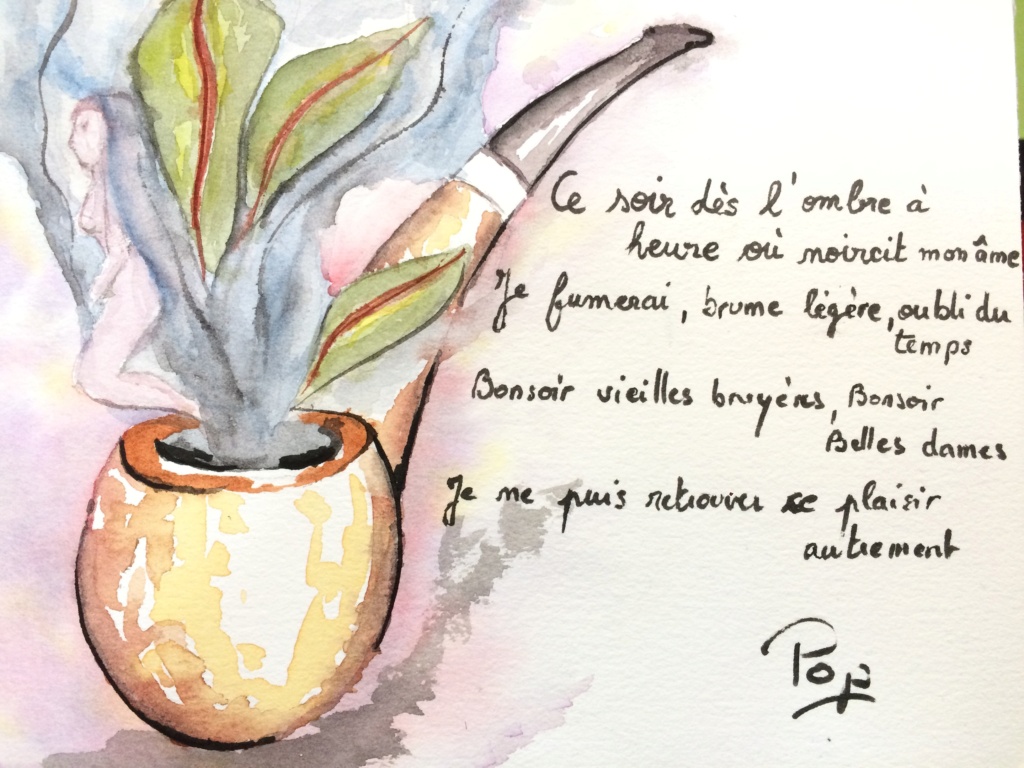 Ce soir dès l'ombre à
heure où noircit mon âme
Je fumerai, brume légère, oubli du
temps
Bonsoir vieilles bruyères, Bonsoir
Belles dames
Je ne puis retrouver ce plaisir
autrement
Pop